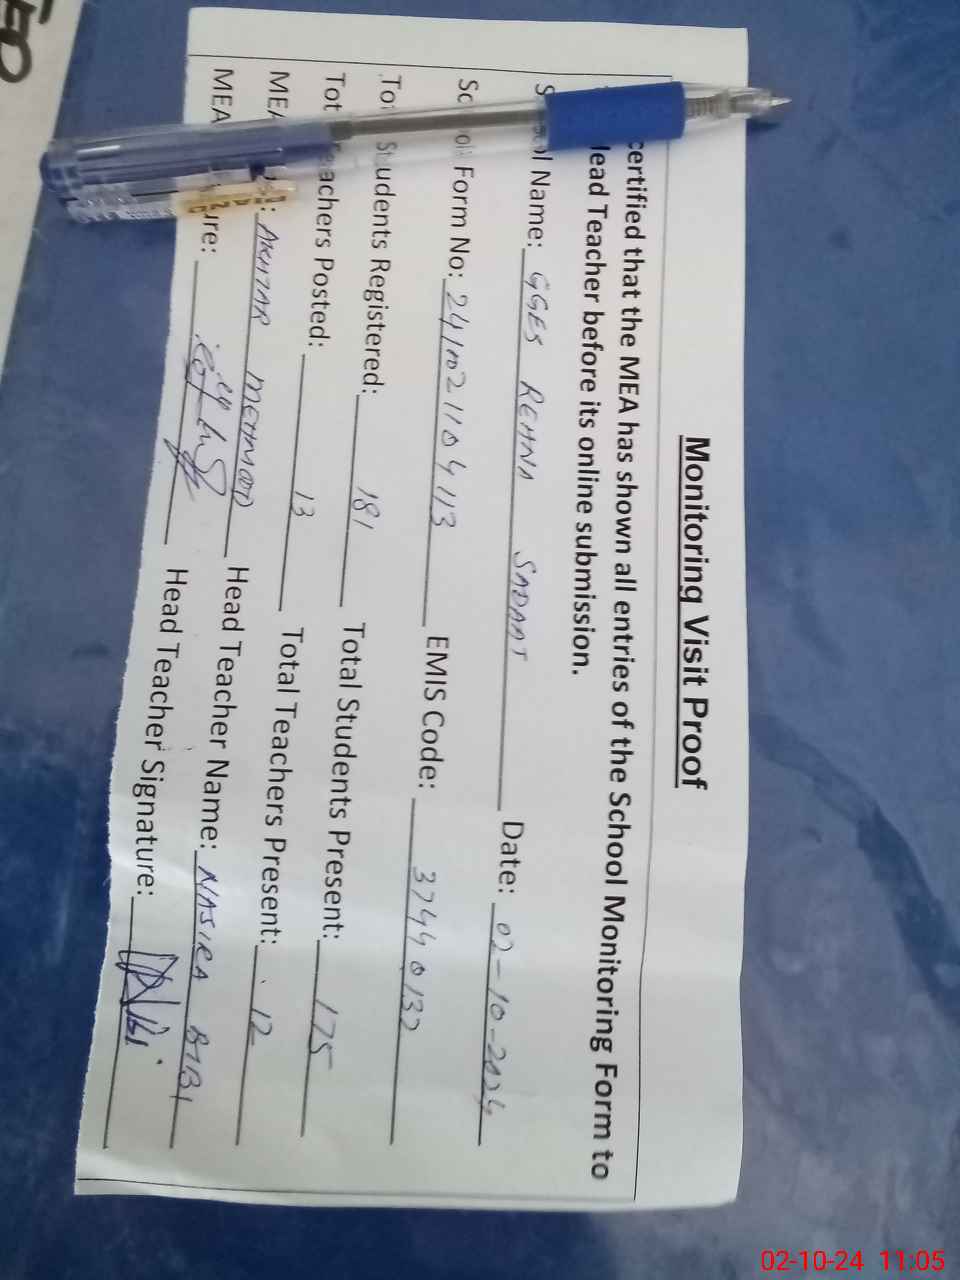 Monitoring Visit Proof
certified that the MEA has shown all entries of the School Monitoring Form to
Head Teacher before its online submission.
School Name: GGES REHNA SADAAT Date: 02-10-2024
School Form No: 241021104113 EMIS Code: 37440132
Total Students Registered: 181 Total Students Present: 175
Total Teachers Posted: 13 Total Teachers Present: 12
MEA AKHTAR MEHMOOD Head Teacher Name: NASIRA BIBI
MEA Head Teacher Signature:
PIANO
02-10-24 11:05